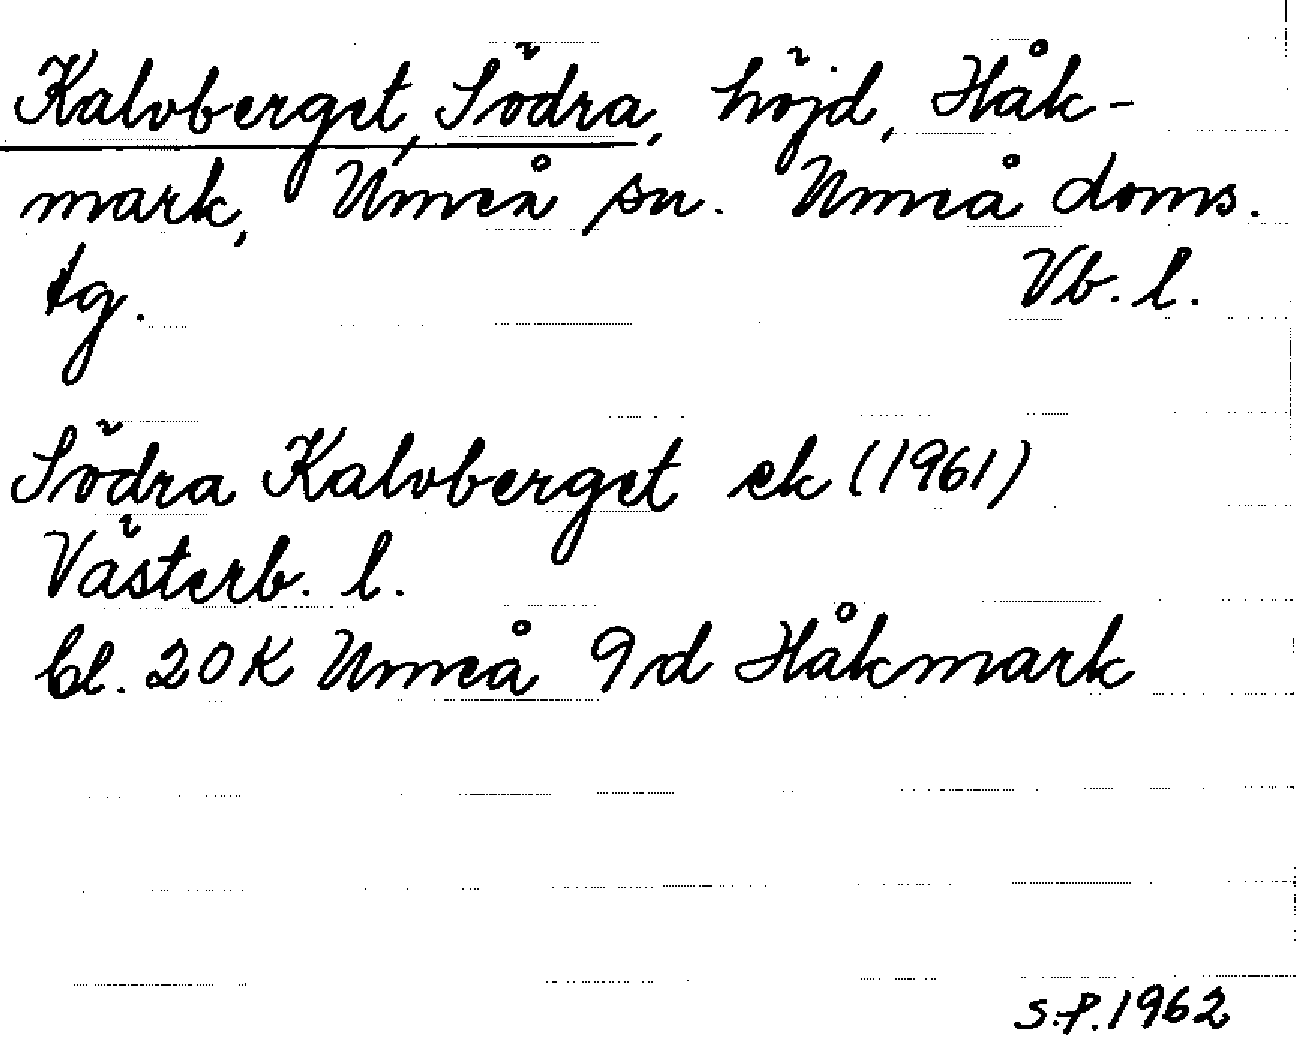 Kalvberget, Södra, höjd, Håk-
mark, Umeå sn. Umeå doms.
tg. Vb. l.
Södra Kalvberget ek (1961)
Västerb. l.
bl. 20K Umeå 9d Håkmark
S.P. 1962